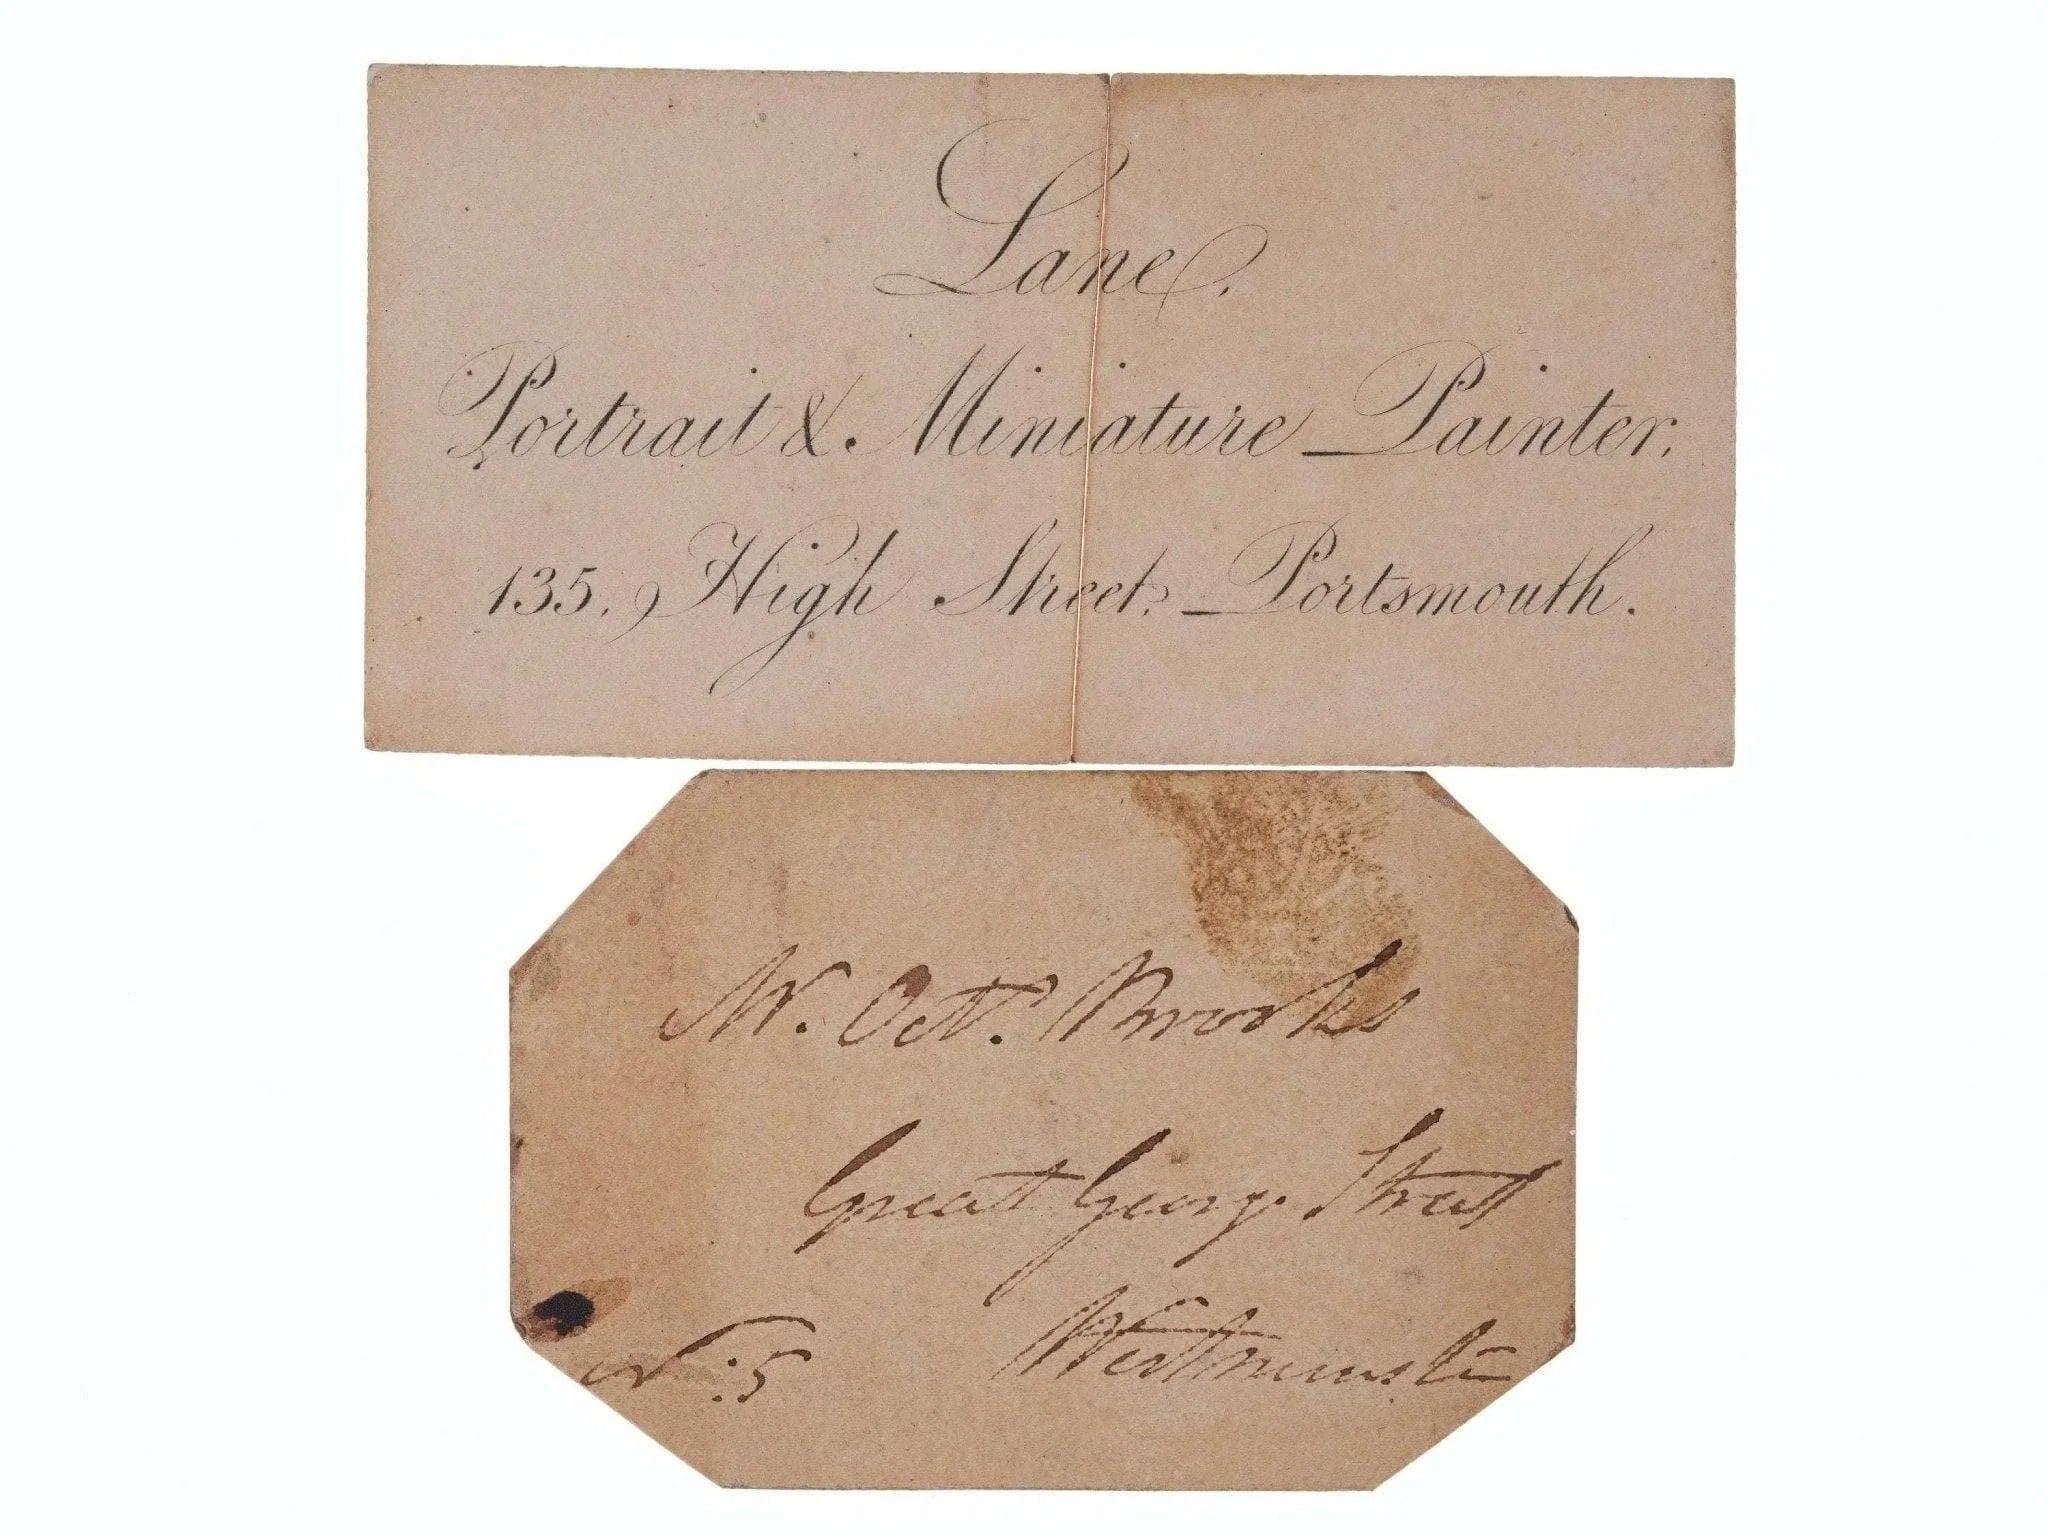 Lane.
Portrait & Miniature Painter,
135, High Street, Portsmouth.
Mr. Octs. Brooks
Great George Street
Westminster
No: 5